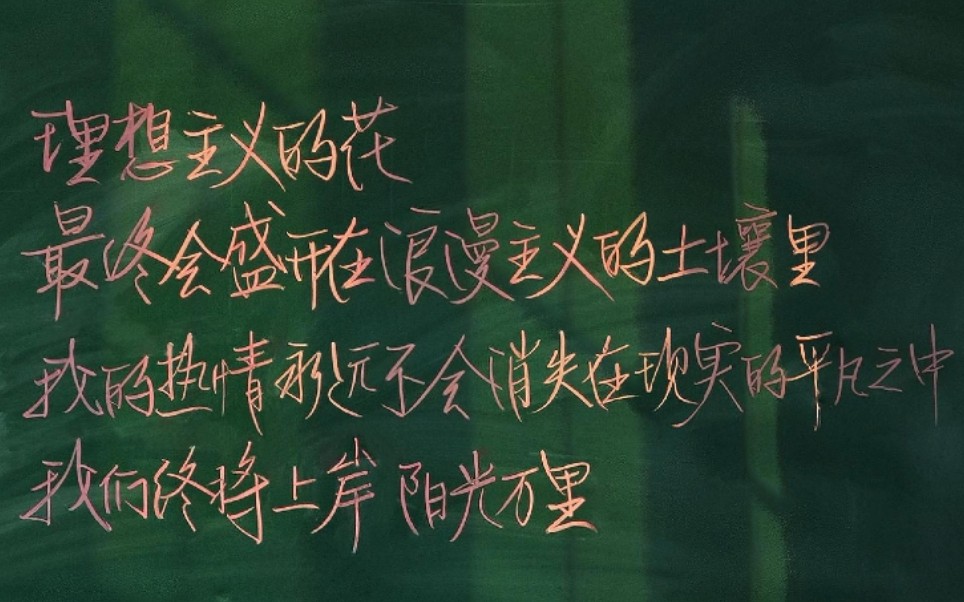 理想主义的花
最终会盛开在浪漫主义的土壤里
我的热情永远不会消失在现实的平凡之中
我们终将上岸 阳光万里